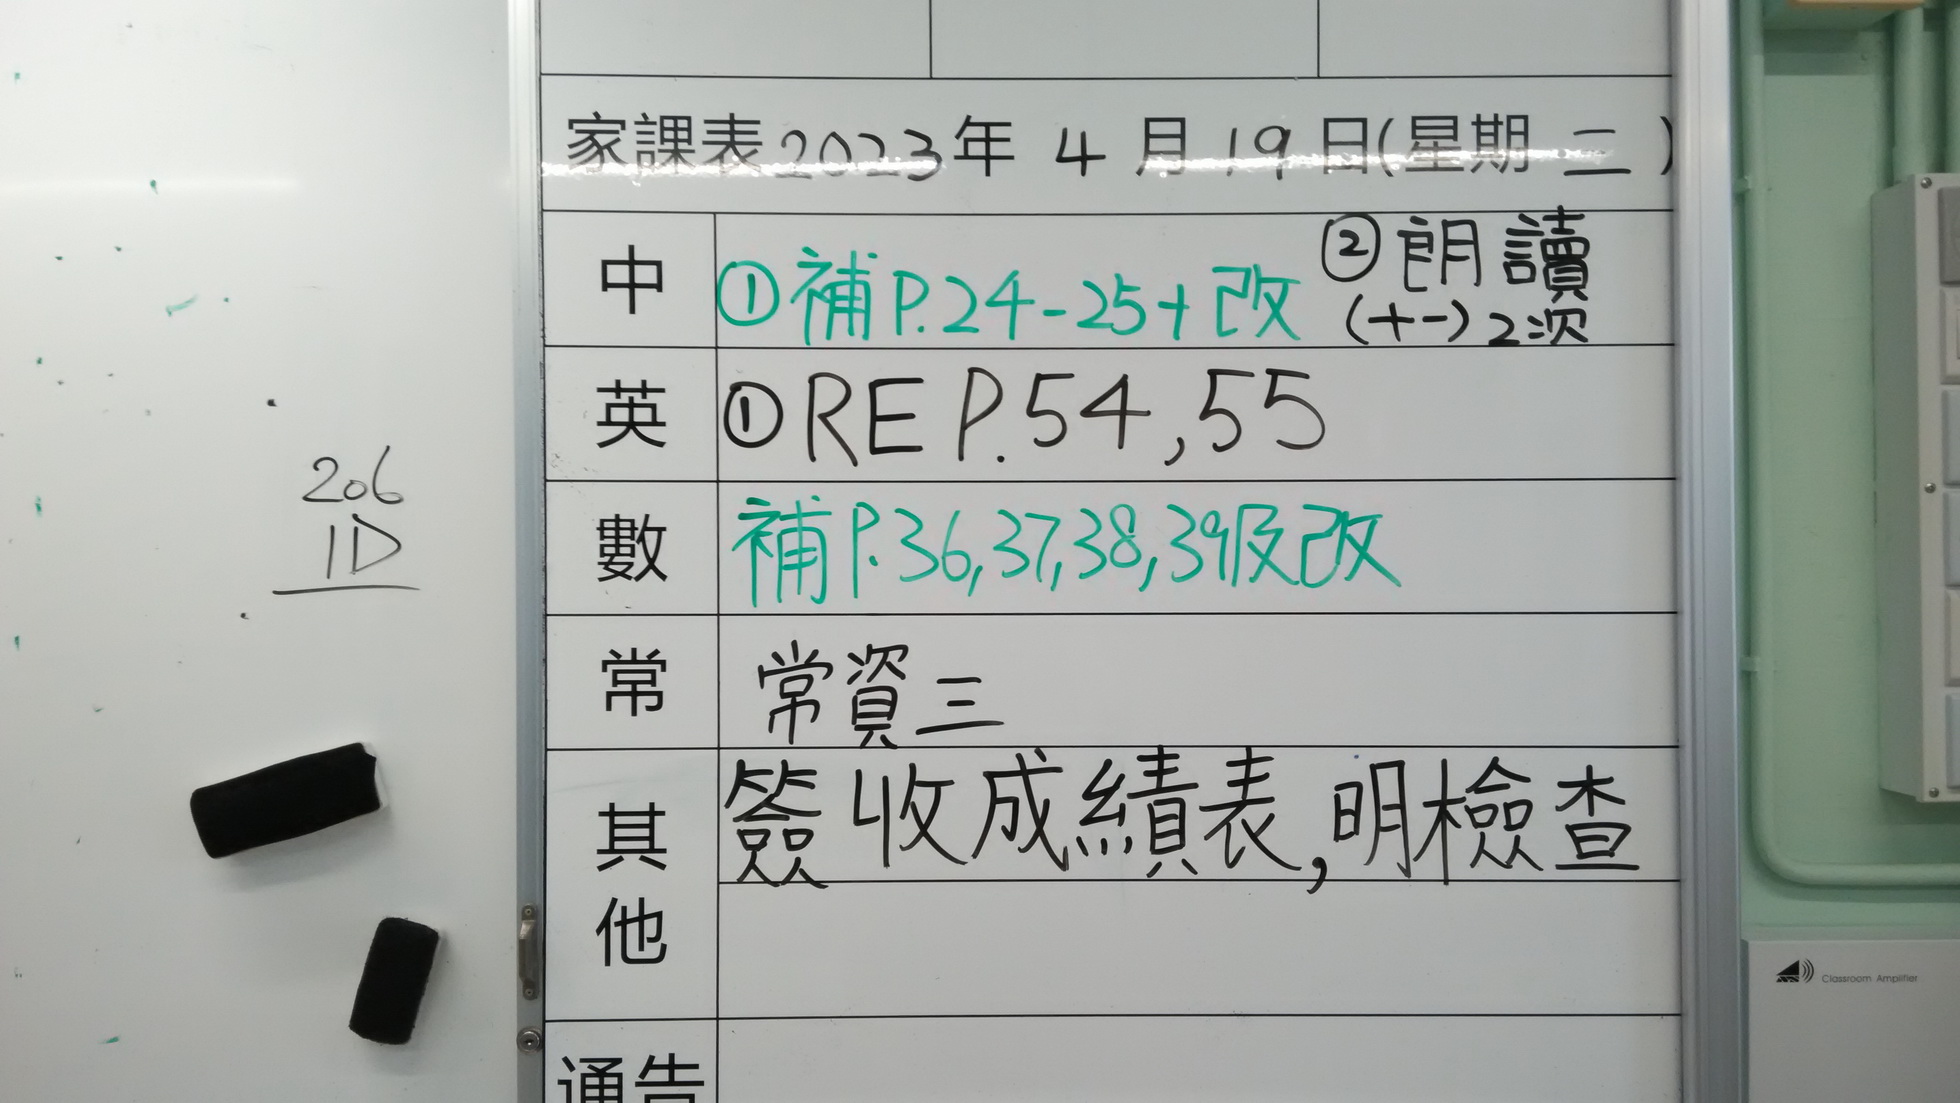 家課表2023年 4 月 19 日(星期 二 )
中 ①補P.24-25+改 ②朗讀
(十一)2次
英 ①RE P.54,55
數 補P.36,37,38,39及改
常 常資三
其他 簽收成績表,明檢查
通告
206
1D
Classroom Amplifier